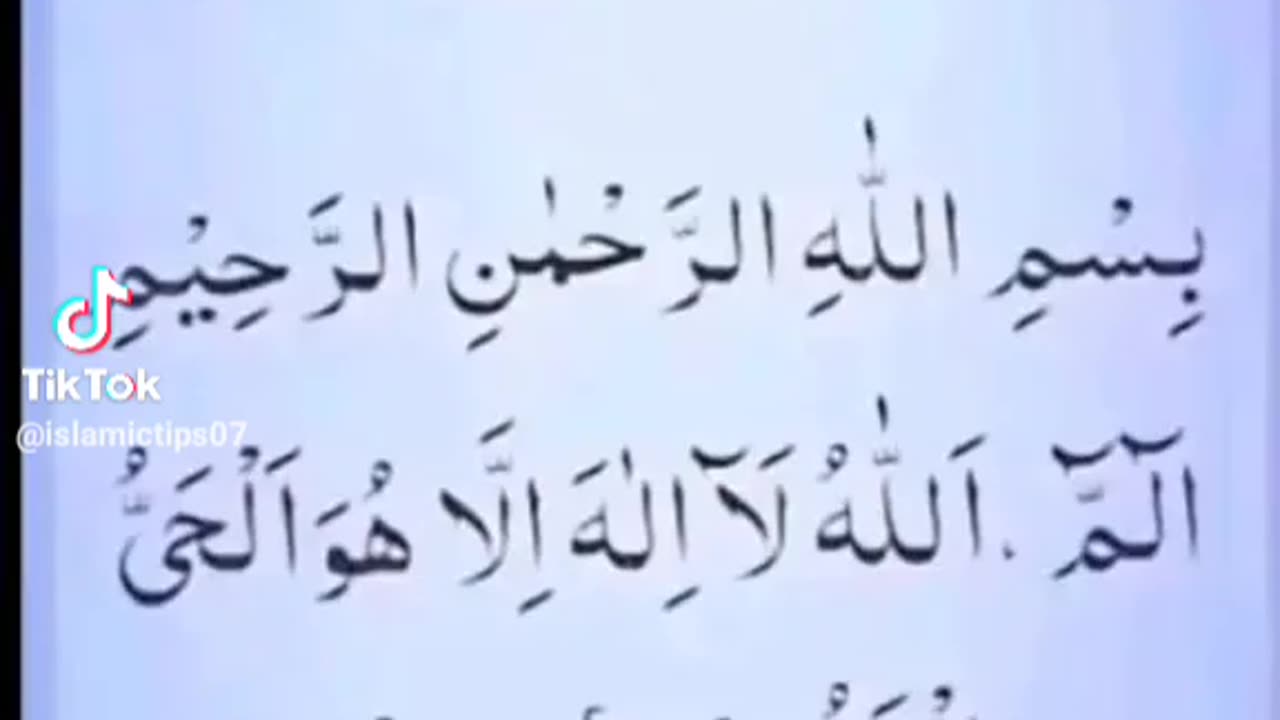 بِسْمِ اللّٰهِ الرَّحْمٰنِ الرَّحِيْمِ
الٓمّٓ . اَللّٰهُ لَآ اِلٰهَ اِلَّا هُوَ اَلْحَىُّ
TikTok
@islamictips07